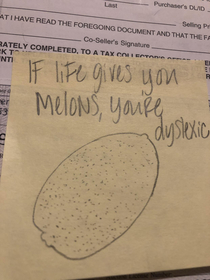 Last
Purchaser's DL/ID
AT I HAVE READ THE FOREGOING DOCUMENT AND THAT THE FA
Selling Pri
Co-Seller's Signature
RATELY COMPLETED, TO A TAX COLLECTOR'S
IF LIFE gives you
MELONS, YOURE
dyslexic